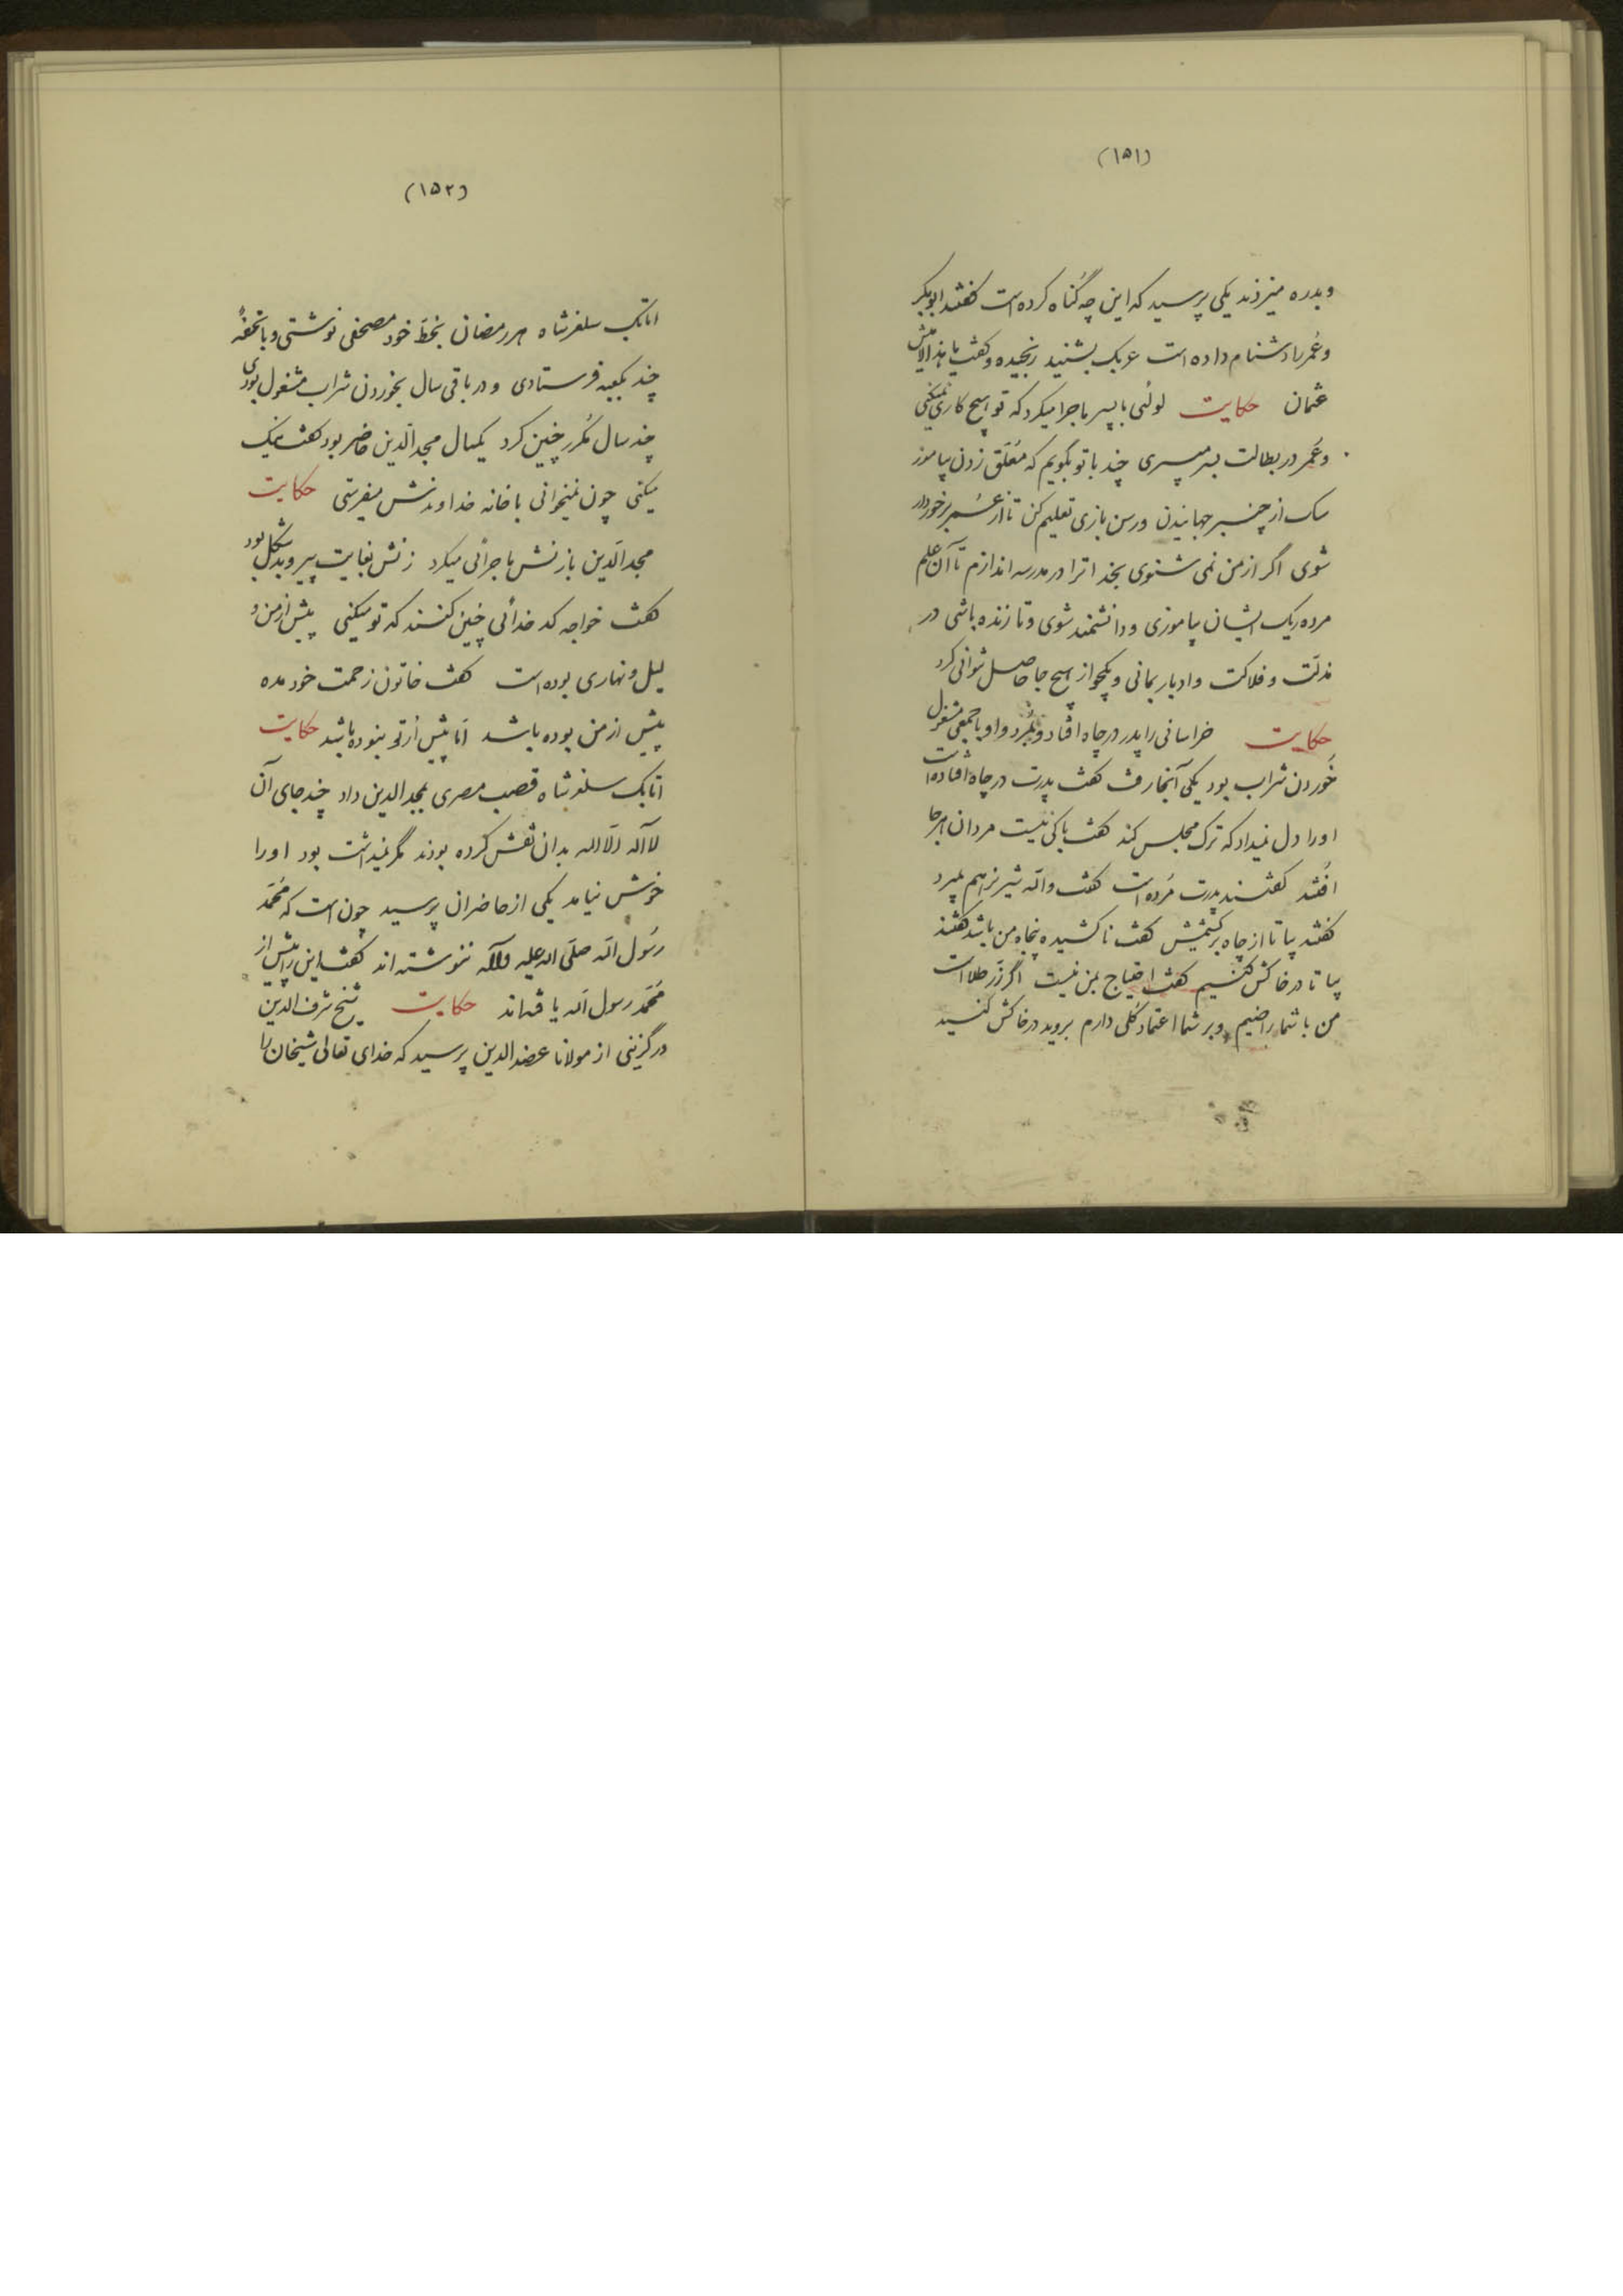 (۱۵۱)
وبدره میزذند یکی پرسید که این چه گناه کرده است کفتند ابوبکر
وعُمر را دشنام داده است عربک بشنید رنجیده وکفت یا هذا لایش
عثمان حکایت لولئی با پسر ماجرا میکرد که تو هیچ کاری نمیکنی
وعُمر در بطالت بسر میبری چند با تو بگویم که مُعلّق زدن بیاموز
سک از چنبر جهانیدن ورسن بازی تعلیم کن تا از عُمر برخوردار
شوی اگر از من نمی شنوی بخدا ترا در مدرسه اندازم تا آن علم
مرده ریک ایشان بیاموزی ودانشمند شوی وتا زنده باشی در
مذلّت وفلاکت وادبار بمانی ویکجو از هیچ جا حاصل نتوانی کرد
حکایت خراسانی را پدر در چاه افتاد وبمُرد واو با جمعی مشغول
خوردن شراب بود یکی آنجا رفت کفت پدرت در چاه افتاده است
اورا دل نمیداد که ترک مجلس کند کفت باکی نیست مردان هرجا
افتند کفتند پدرت مُرده است کفت والله شیر نر هم بمیرد
کفتند بیا تا از چاه برکشیمش کفت ناکشیده پنجاه من باشد کفتند
بیا تا در خاکش کنیم کفت احتیاج بمن نیست اگر زر طلا است
من با شما راضیم وبر شما اعتماد کُلّی دارم بروید در خاکش کنید
(۱۵۲)
اتابک سلغرشاه هر رمضان بخطّ خود مصحفی نوشتی وبا تحفهٔ
چند بکعبه فرستادی ودر باقی سال بخوردن شراب مشغول بودی
چند سال مُکرر چنین کرد یکسال مجدالّدین حاضر بود کفت نیک
میکنی چون نمیخوانی با خانه خداوندش میفرستی حکایت
مجدالّدین با زنش ماجرائی میکرد زنش بغایت پیر وبدشکل بود
کفت خواجه کدخدائی چنین کنند که تو میکنی پیش از من و
لیل ونهاری بوده است کفت خاتون زحمت خود مده
پیش از من بوده باشد امّا پیش از تو نبوده باشد حکایت
اتابک سلغرشاه قصب مصری بمجدالدین داد چند جای آن
لا آله الّا الله بدان نقش کرده بودند مگر نیمداشت بود اورا
خوش نیامد یکی از حاضران پرسید چون است که مُحمّد
رسُول الله صلّی الله علیه وآله ننوشته اند کفت این را پیش از
مُحمّد رسول الله بافته اند حکایت شیخ شرف الدین
درگزینی از مولانا عضدالدین پرسید که خدای تعالی شیخان را